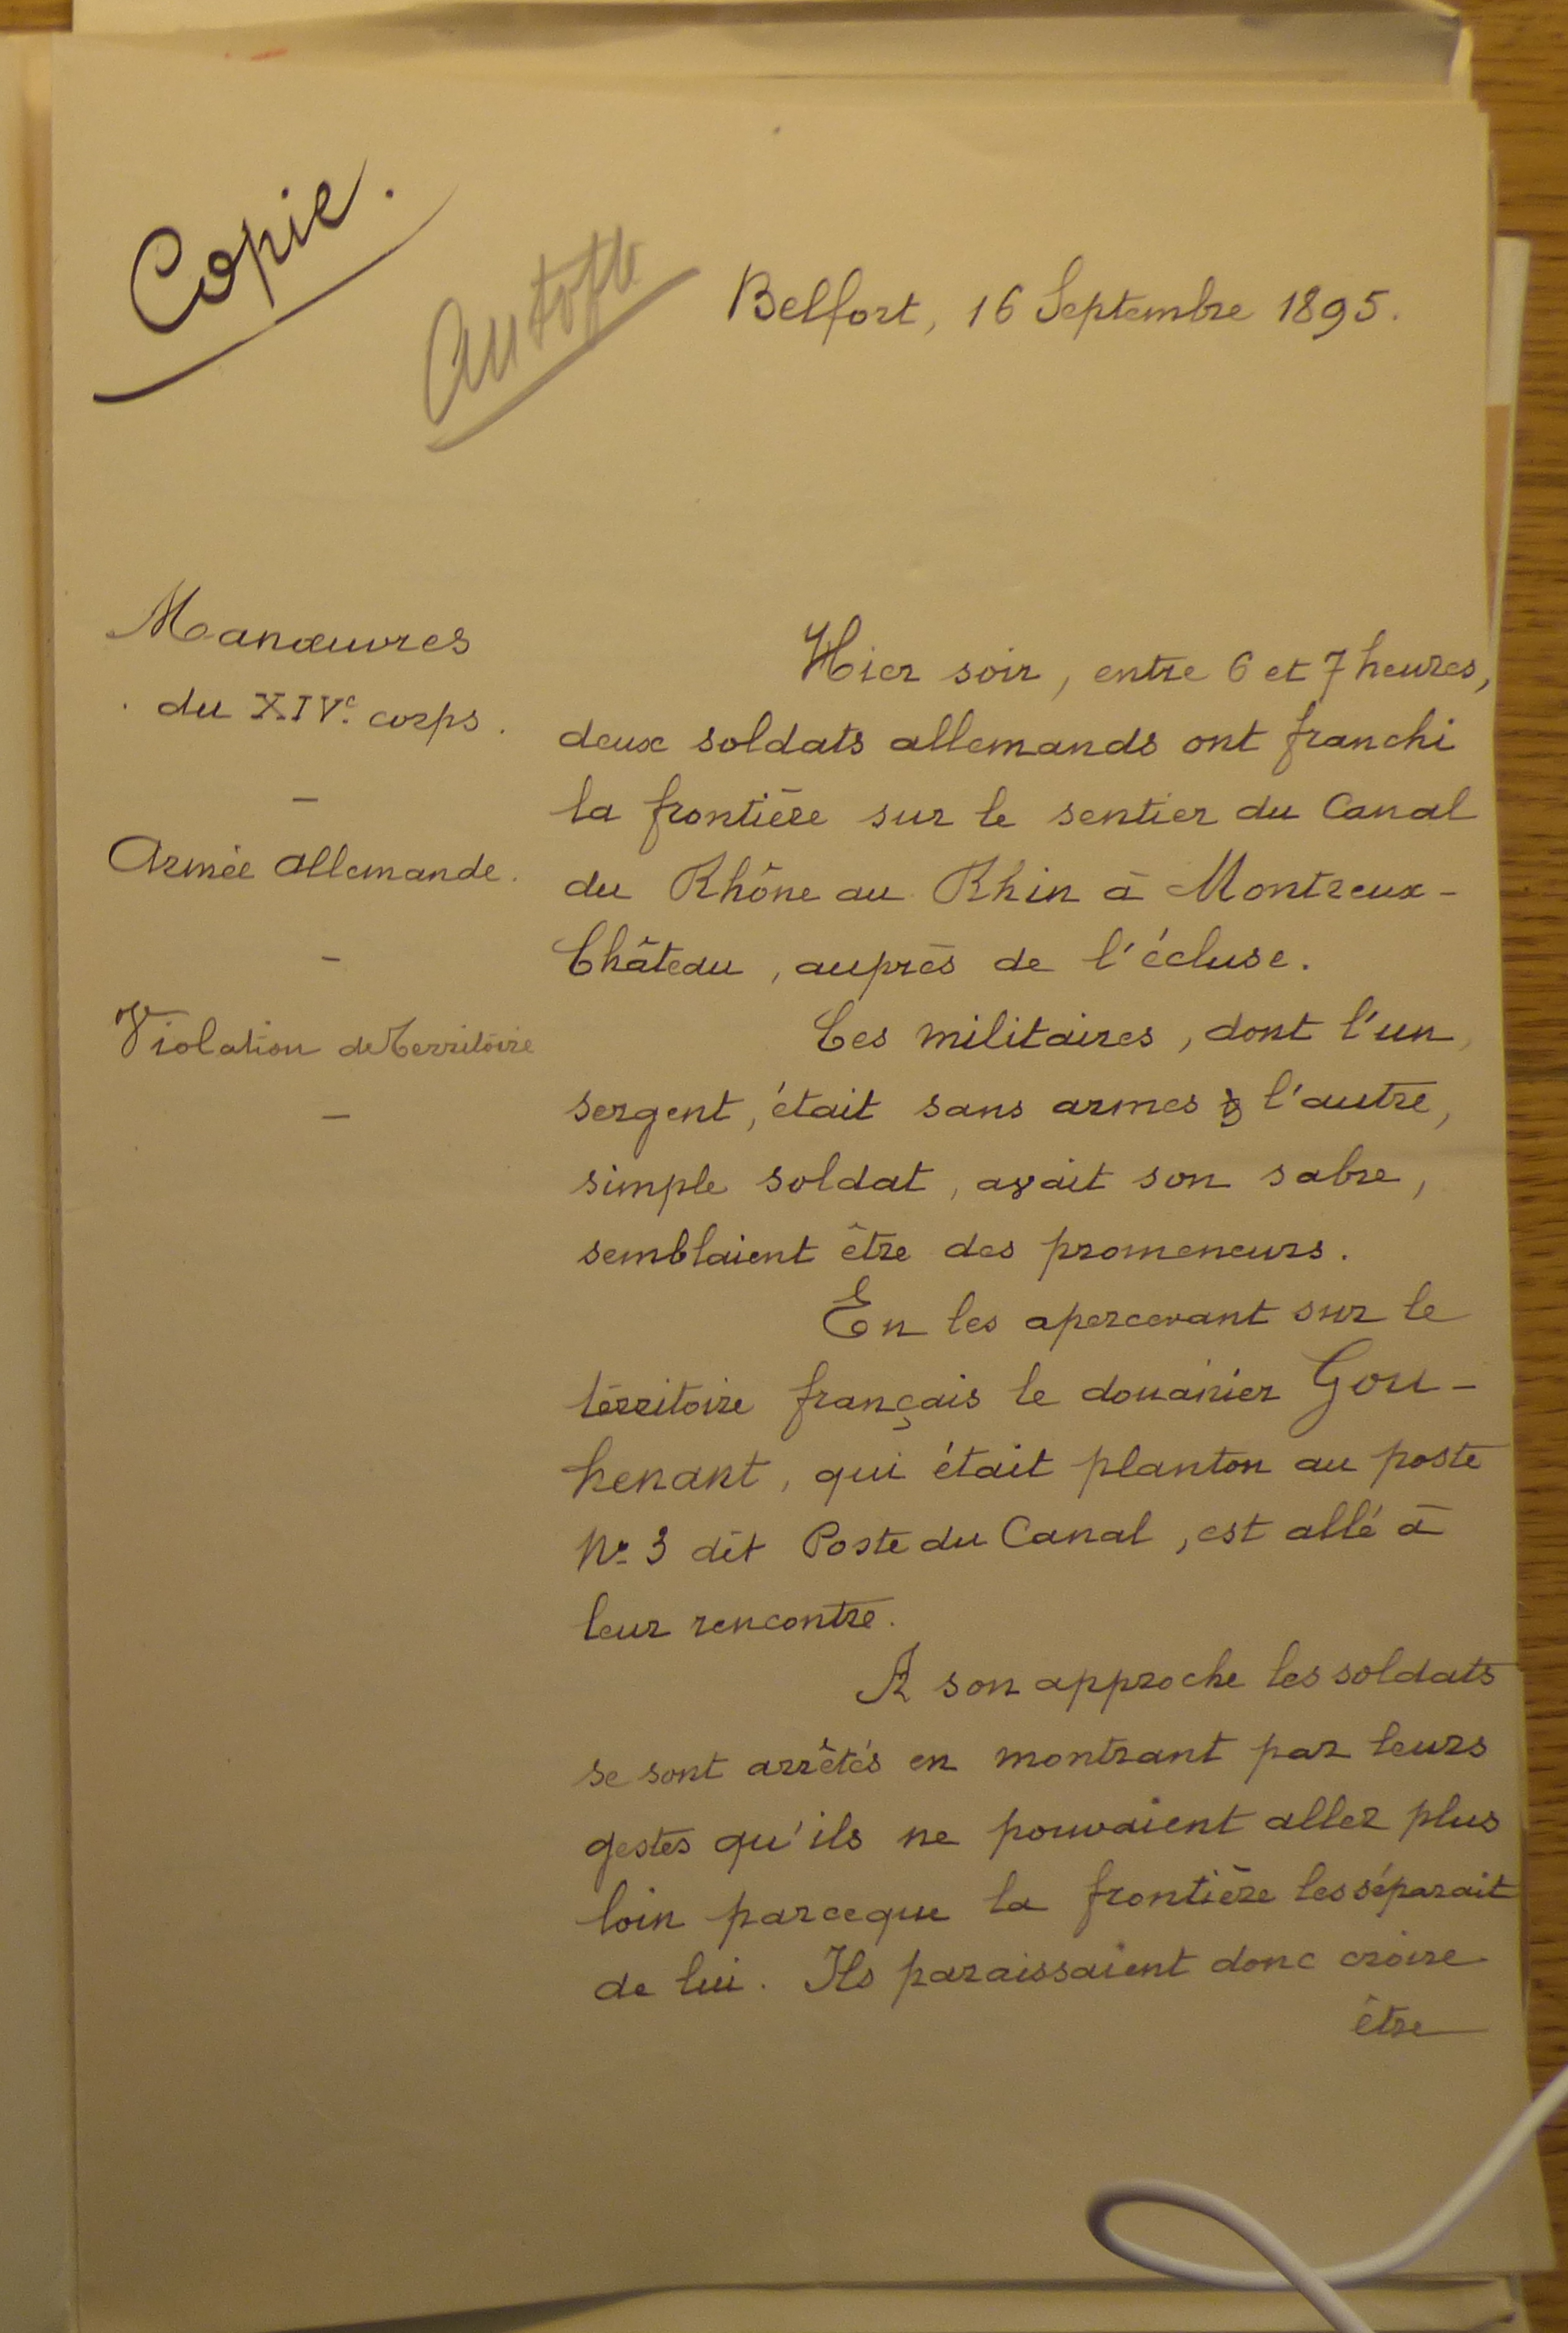 Copie.
Belfort, 16 Septembre 1895.
Manœuvres
du XIVe corps.
—
Armée allemande.
—
Violation de Territoire
—
Hier soir, entre 6 et 7 heures,
deux soldats allemands ont franchi
la frontière sur le sentier du Canal
du Rhône au Rhin à Montreux-
Château, auprès de l'écluse.
Ces militaires, dont l'un,
sergent, était sans armes & l'autre,
simple soldat, avait son sabre,
semblaient être des promeneurs.
En les apercevant sur le
territoire français le douanier Gou-
henant, qui était planton au poste
No 3 dit Poste du Canal, est allé à
leur rencontre.
A son approche les soldats
se sont arrêtés en montrant par leurs
gestes qu'ils ne pouvaient aller plus
loin parceque la frontière les séparait
de lui. Ils paraissaient donc croire
être